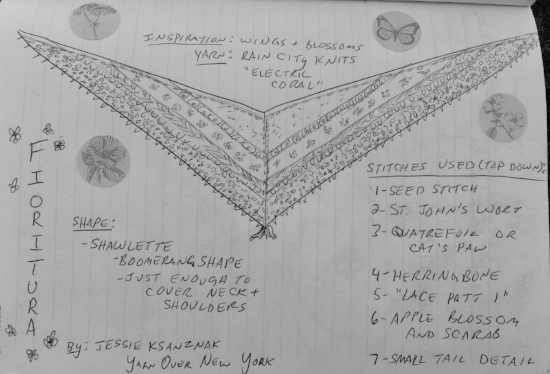 INSPIRATION: WINGS + BLOSSOMS
YARN: RAIN CITY KNITS
"ELECTRIC
CORAL"
FIORITURA
SHAPE:
- SHAWLETTE
- BOOMERANG SHAPE
- JUST ENOUGH TO
COVER NECK +
SHOULDERS
BY: JESSIE KSANZNAK
YARN OVER NEW YORK
STITCHES USED (TOP DOWN):
1- SEED STITCH
2- ST. JOHN'S WORT
3- QUATREFOIL OR
CAT'S PAW
4- HERRINGBONE
5- "LACE PATT 1"
6- APPLE BLOSSOM
AND SCARAB
7- SMALL TAIL DETAIL